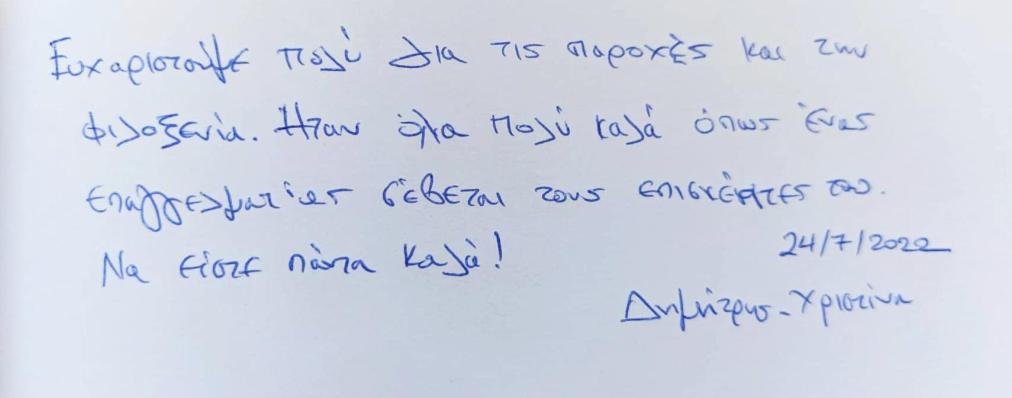 Ευχαριστούμε πολύ για τις παροχές και την
φιλοξενία. Ήταν όλα πολύ καλά όπως ένας
επαγγελματίας σέβεται τους επισκέπτες του.
Να είστε πάντα καλά!
24/7/2022
Δημήτρης - Χριστίνα